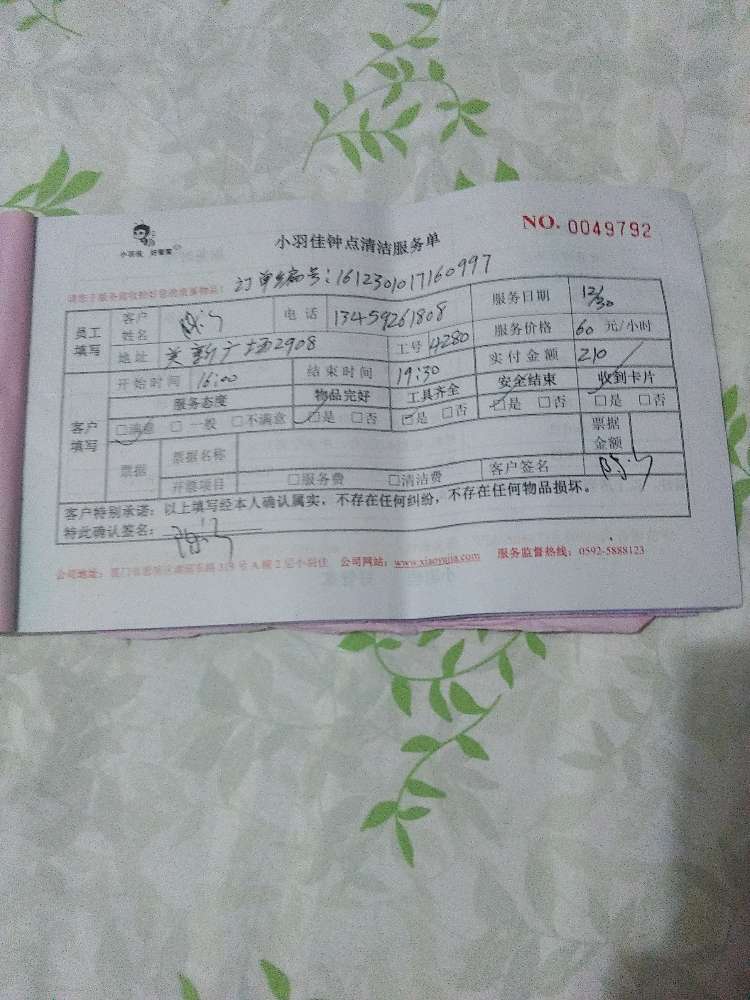 小羽佳 好管家
小羽佳钟点清洁服务单
NO. 0049792
订单编号:1612301017160997
员工填写 客户姓名 电话 13459261808 服务日期 12/30
地址 美新广场2908 工号 4280 服务价格 60 元/小时
开始时间 16:00 结束时间 19:30 实付金额 210
客户填写 服务态度 物品完好 工具齐全 安全结束 收到卡片
☑满意 □一般 □不满意 ☑是 □否 ☑是 □否 ☑是 □否 □是 □否
票据 票据名称 票据金额
开票项目 □服务费 □清洁费 客户签名
客户特别承诺:以上填写经本人确认属实,不存在任何纠纷,不存在任何物品损坏。
特此确认签名:
公司地址: 公司网站:www.xiaoyujia.com 服务监督热线:0592-5888123